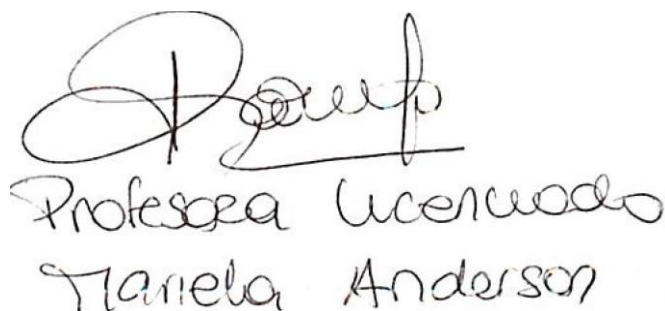 Profesora Licenciada
Mariela Anderson